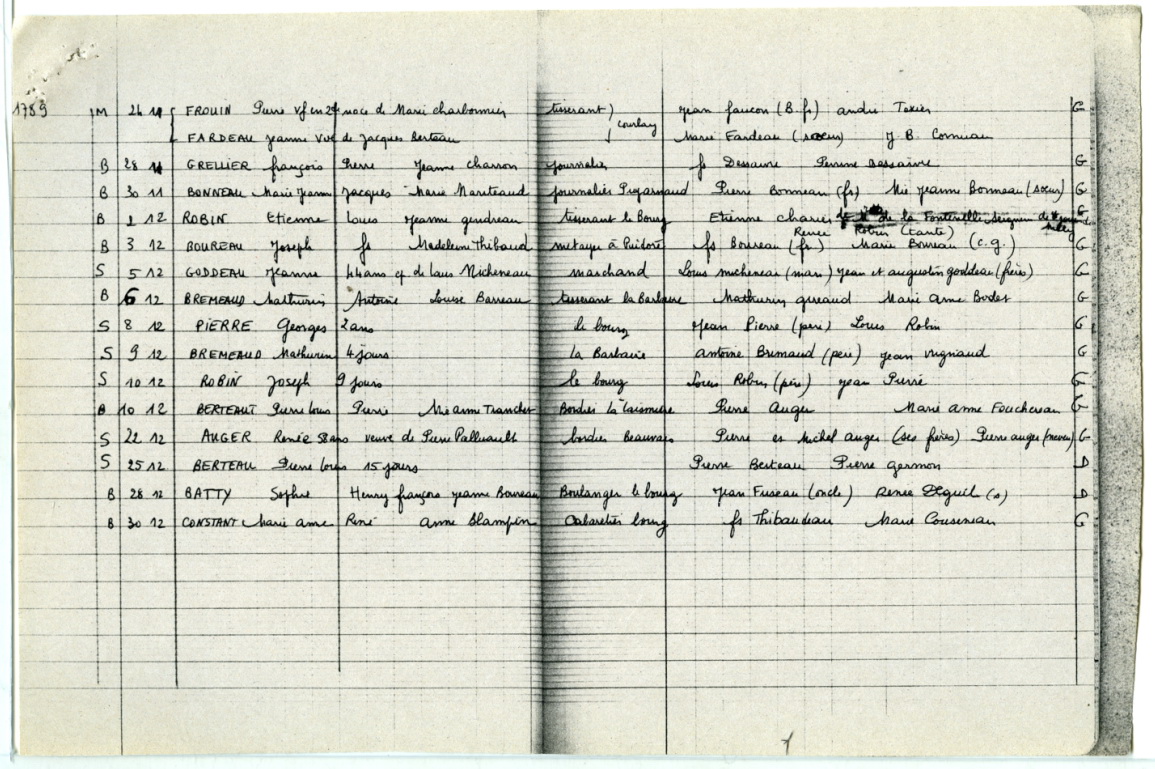 1789 M 26 11 FROUIN Pierre vf en 2e noce de Marie charbonnier tisserant jean faucon (B.fr) andré Texier G
FARDEAU jeanne vve de jacques Berteau courlay Marie Fardeau (sœur) J.B. Cornuau
B 28 11 GRELLIER françois Pierre Jeanne Charron journalier fs Dessaivre Perrine Dessaivre G
B 30 11 BONNEAU Marie jeanne Jacques Marie Marteaud journalier Puyarnaud Pierre Bonneau (fr) Mie jeanne Bonneau (sœur) G
B 1 12 ROBIN Etienne Louis Jeanne gendreau tisserant le Bourg Etienne charles de la Fontenelle seigneur de G
Renée Robin (tante)
B 3 12 BOUREAU Joseph fs Madeleine Thibaud métayer à fs Boureau (fr.) Marie Boureau (c.g.) G
S 5 12 GODDEAU Jeanne 44 ans ep. de Louis Micheneau marchand Louis micheneau (mari) jean et augustin goddeau (frères) G
B 6 12 BREMEAUD Mathurin Antoine Louise Barreau tisserant la Barbaire Mathurin Marie anne Bodet G
S 8 12 PIERRE Georges 2 ans le bourg Jean Pierre (père) Louis Robin G
S 9 12 BREMEAUD Mathurin 4 jours la Barbaire antoine Brimaud (père) jean vrignaud G
S 10 12 ROBIN Joseph 9 jours le bourg Louis Robin (père) jean Pierre G
B 10 12 BERTEAUT Pierre Louis Pierre Mie anne Tranchet Bordier Pierre Auger Marie anne Fouchereau G
S 22 12 AUGER Renée 58 ans veuve de Pierre Palluault bordier Beauvais Pierre et Michel auger (ses frères) Pierre auger (neveu) G
S 25 12 BERTEAU Pierre Louis 15 jours Pierre Berteau Pierre germon D
B 28 12 BATTY Sophie Henry françois jeanne Boureau Boulanger le bourg Jean Fuseau (oncle) Renée (s) D
B 30 12 CONSTANT Marie anne René anne Blampin Cabaretier bourg fs Thibaudeau Marie Cousineau G